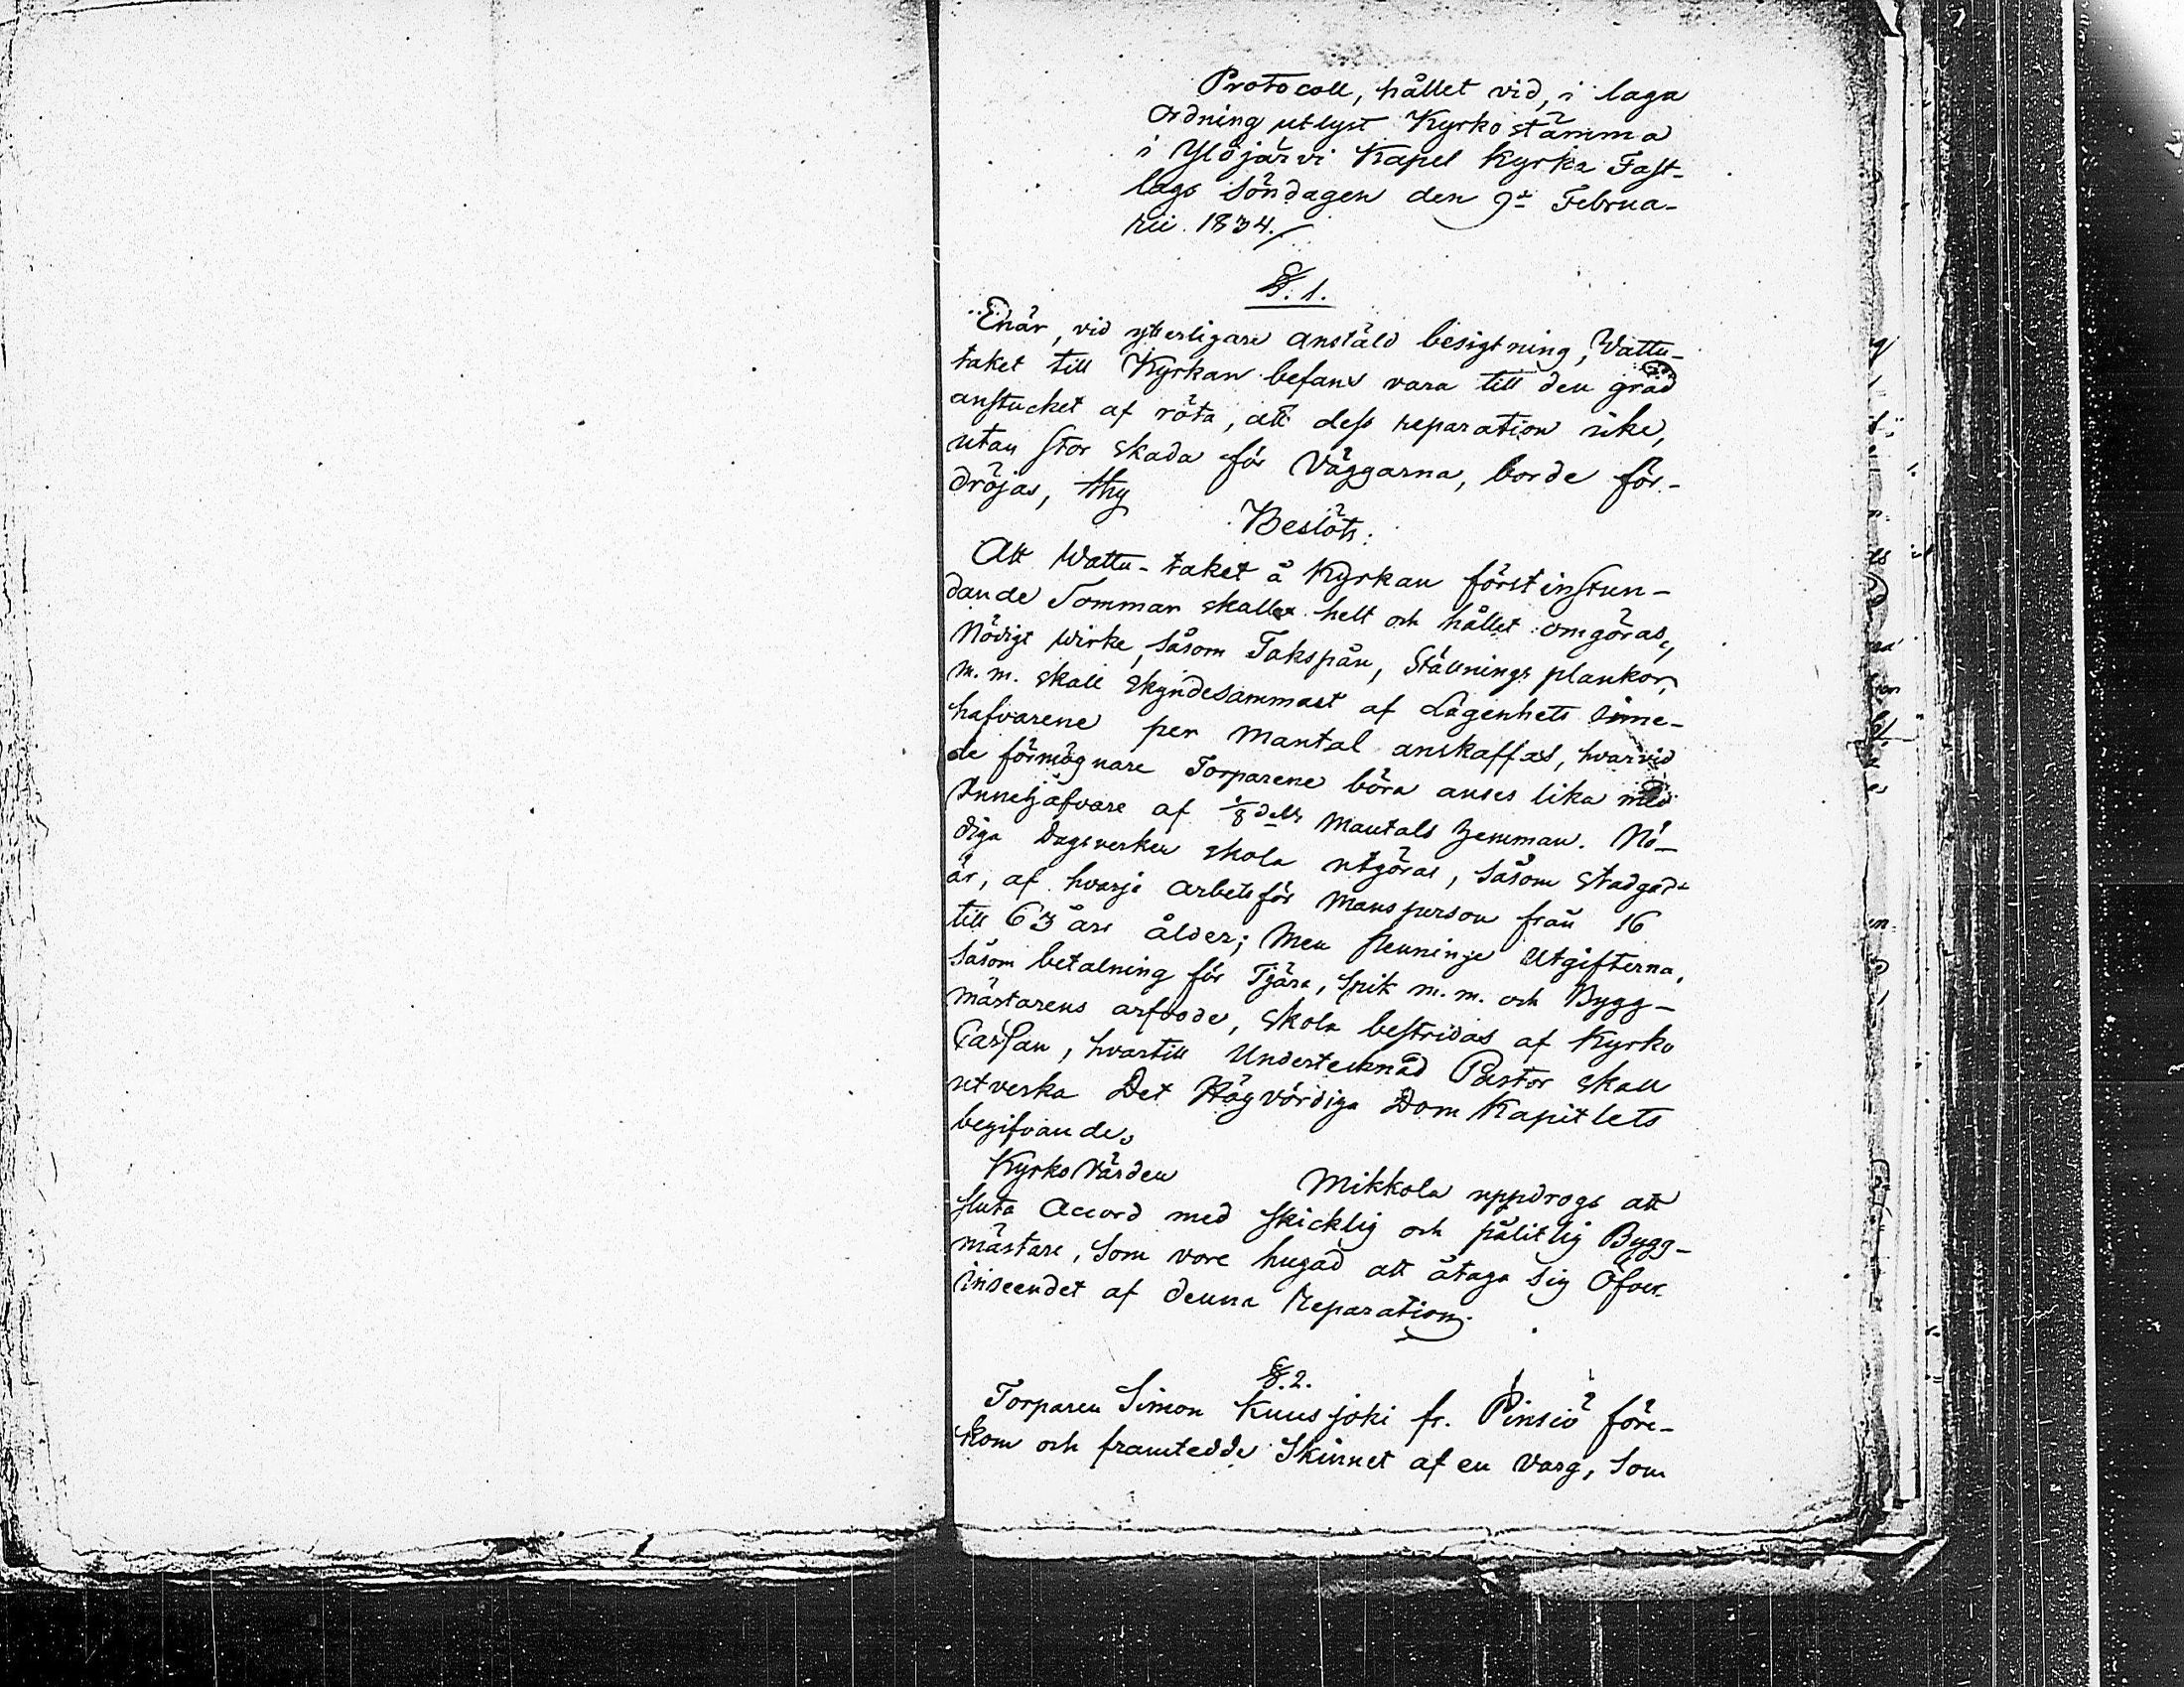 Protocoll, hållet vid, i laga
Ordning utlyst Kyrkostämma
i Ylöjärvi Kapel kyrka Fast-
lags Söndagen den 9de Februa-
rii 1834.
§. 1.
Enär, vid ytterligare anstäld besigtning, Vattu-
taket till Kyrkan befans vara till den grad
anstucket af röta, att dess reparation icke,
utan stor skada för Väggarna, borde för-
dröjas, thy
Beslöts:
Att Wattu-taket å Kyrkan förstinstun-
dande Sommar skall helt och hållet omgöras,
Nödigt Wirke, såsom Takspån, Ställnings plankor,
m. m. skall skyndesammast af Lägenhets inne-
hafvarene per mantal anskaffas, hvarvid
de förmögnare Torparene böra anses lika med
Innehafvare af 1/8 dels Mantals hemman. Nö-
diga Dagsverken skola utgöras, såsom stadgadt
är, af hvarje arbetsför Mansperson från 16
till 63 års ålder; Men penninge Utgifterna,
såsom betalning för Tjära, Spik m. m. och Bygg-
mästarens arfvode, skola bestridas af Kyrko
Cassan, hvartill Undertecknad Pastor skall
utverka Det Högvördiga Dom Kapitlets
begifvande.
Kyrko Värden Mikkola uppdrogs att
sluta Accord med skicklig och pålitlig Bygg-
mästare, som vore hugad att åtaga sig Öfver
inseendet af denna Reparation.
§. 2.
Torparen Simon Kuusjoki fr. Pinsiö före-
kom och framtedde Skinnet af en Varg, som